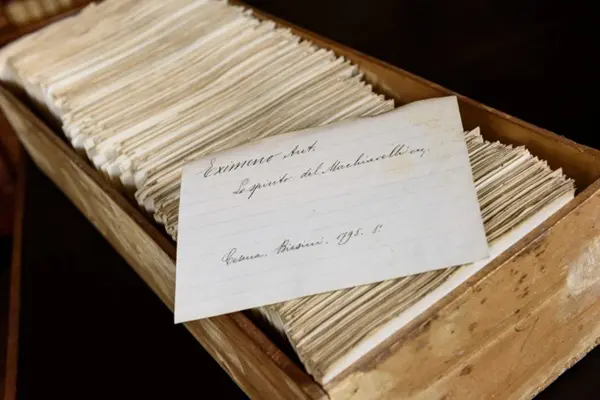 Eximeno Ant.
Lo spirito del Machiavelli
Cesena. Biasini. 1795. 8.